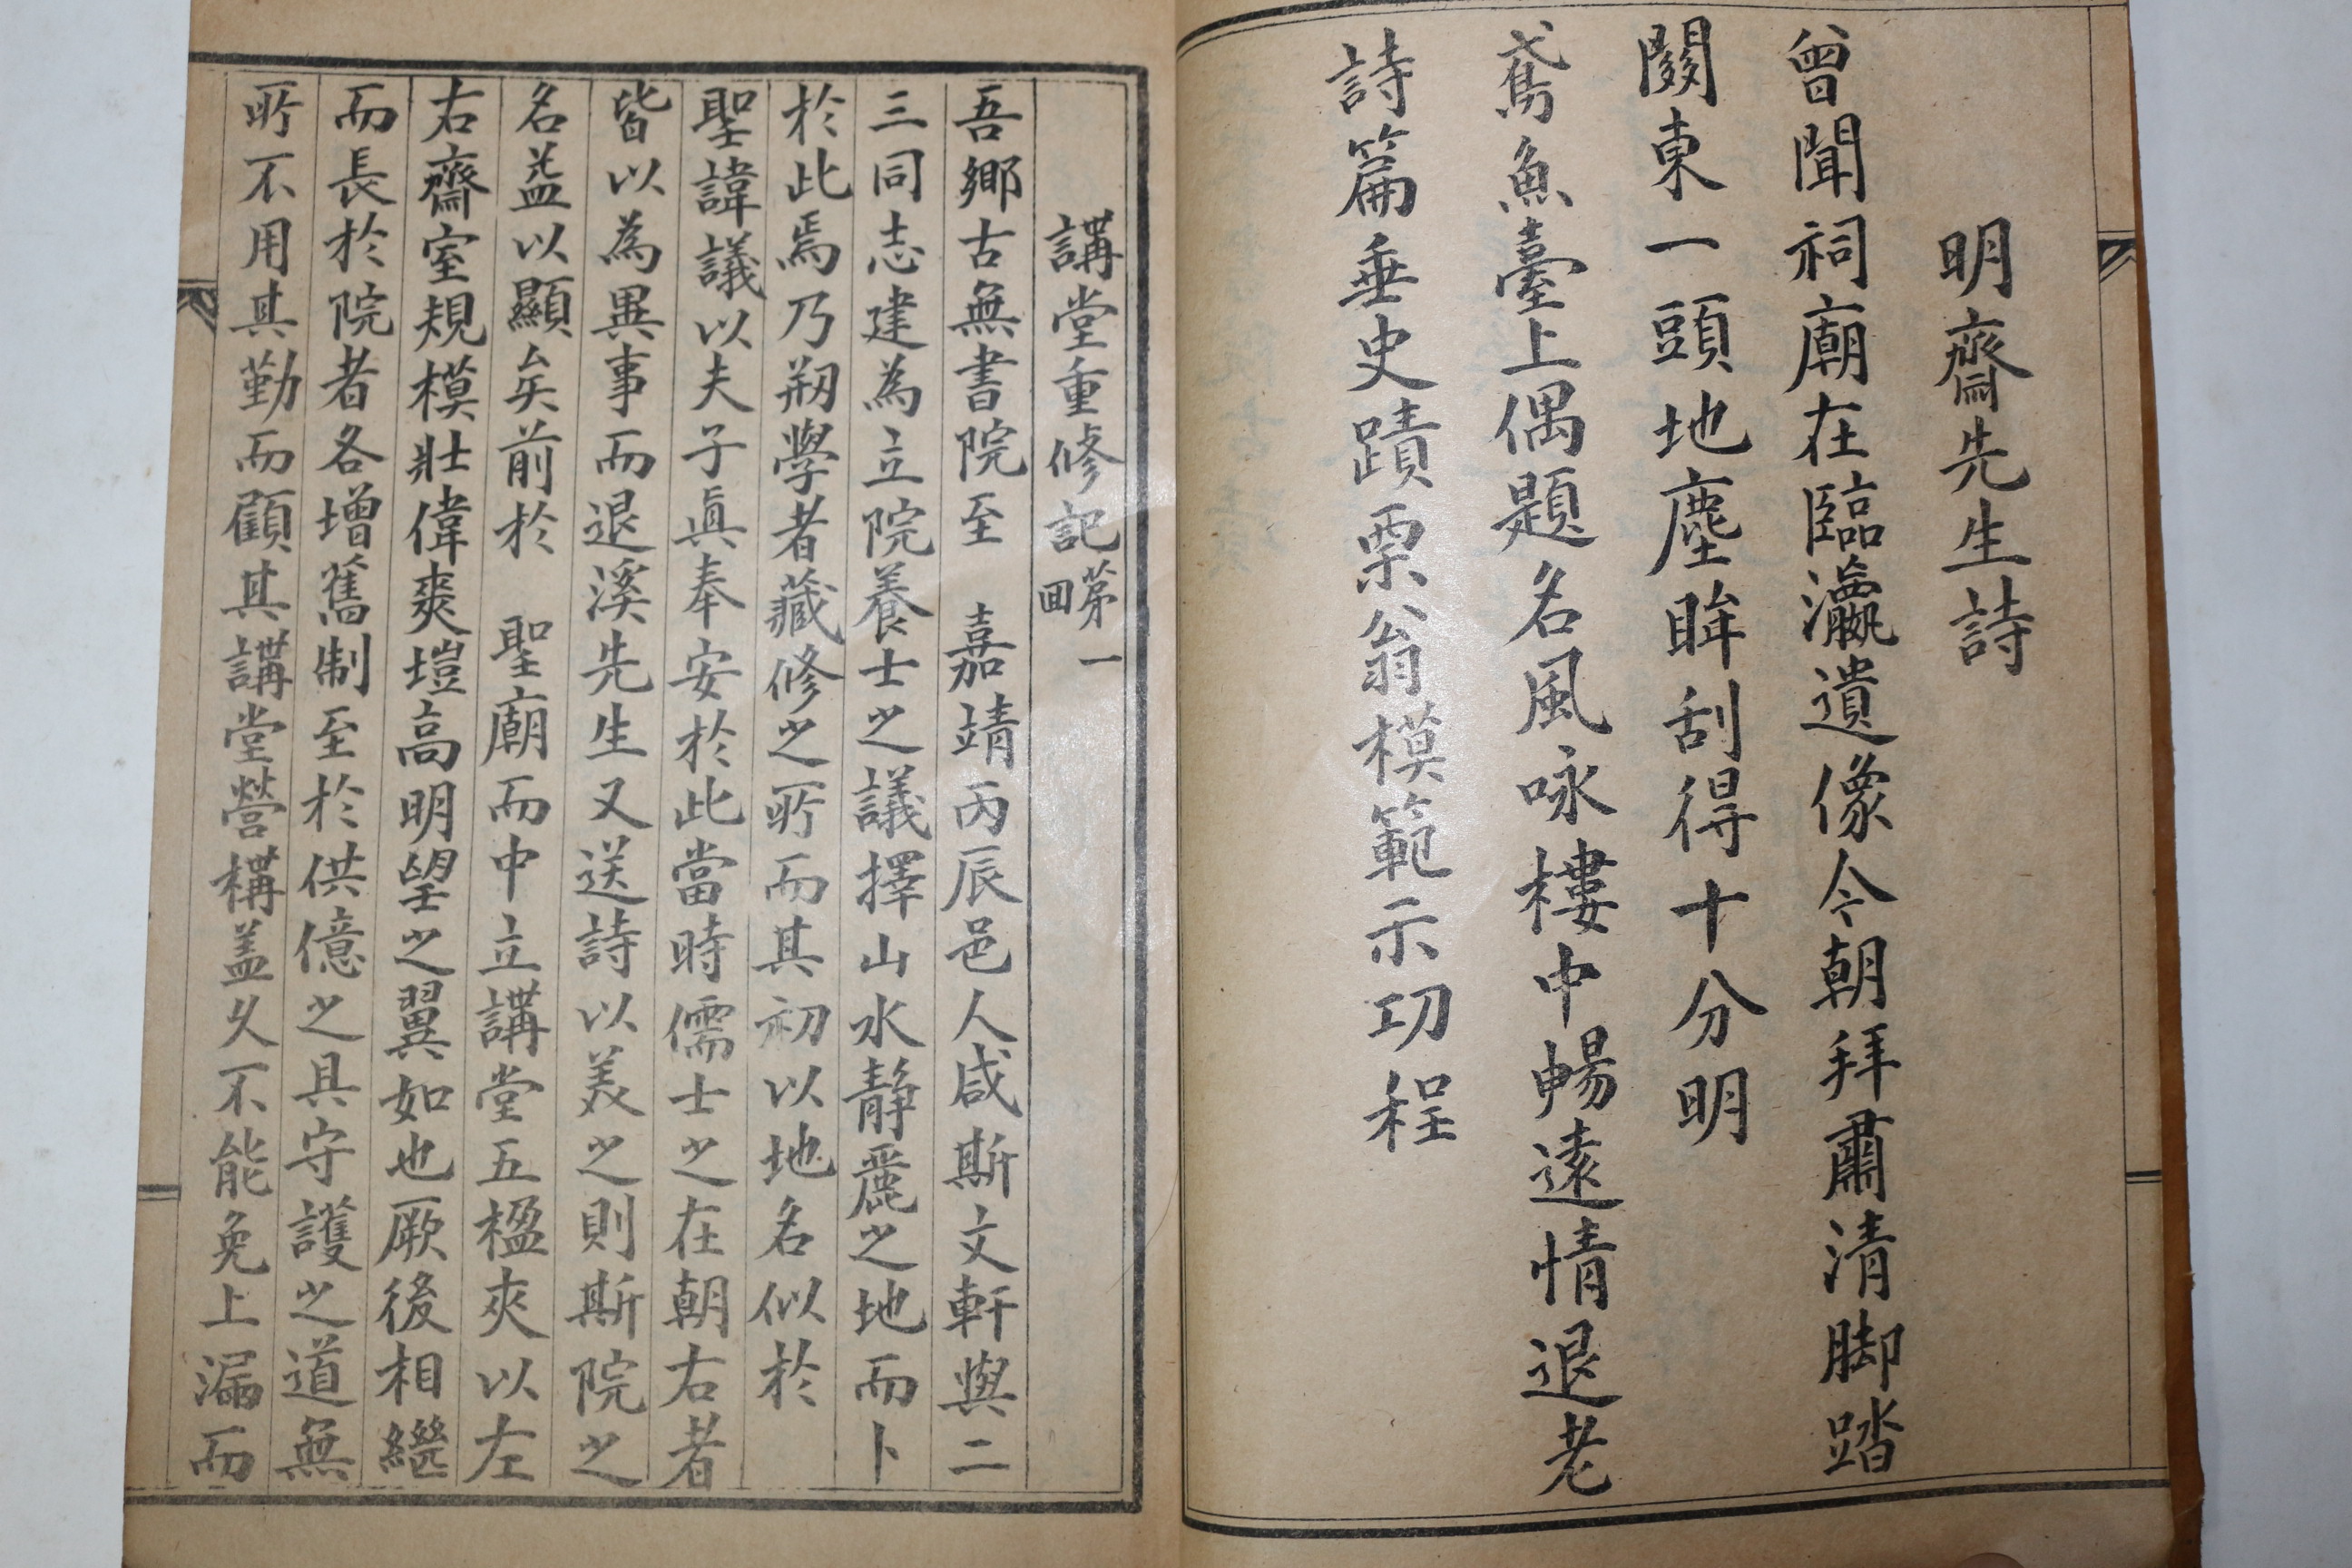 明齋先生詩
曾聞祠廟在臨瀛遺像今朝拜肅清脚踏
關東一頭地塵眸刮得十分明
鳶魚臺上偶題名風咏樓中暢遠情退老
詩篇垂史蹟栗翁模範示功程
講堂重修記第一回
吾鄉古無書院至 嘉靖丙辰邑人咸斯文軒與二
三同志建為立院養士之議擇山水靜麗之地而卜
於此焉乃刱學者藏修之所而其初以地名似於
聖諱議以夫子眞奉安於此當時儒士之在朝右者
皆以為異事而退溪先生又送詩以美之則斯院之
名益以顯矣前於 聖廟而中立講堂五楹夾以左
右齋室規模壯偉爽塏高明望之翼如也厥後相繼
而長於院者各增舊制至於供億之具守護之道無
所不用其勤而顧其講堂營構盖久不能免上漏而